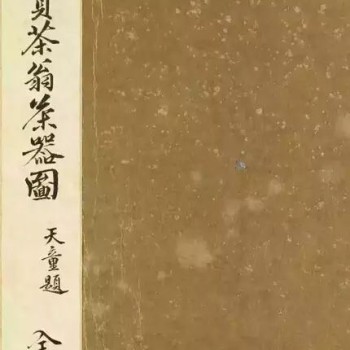 茶翁茶器圖
天童題
全